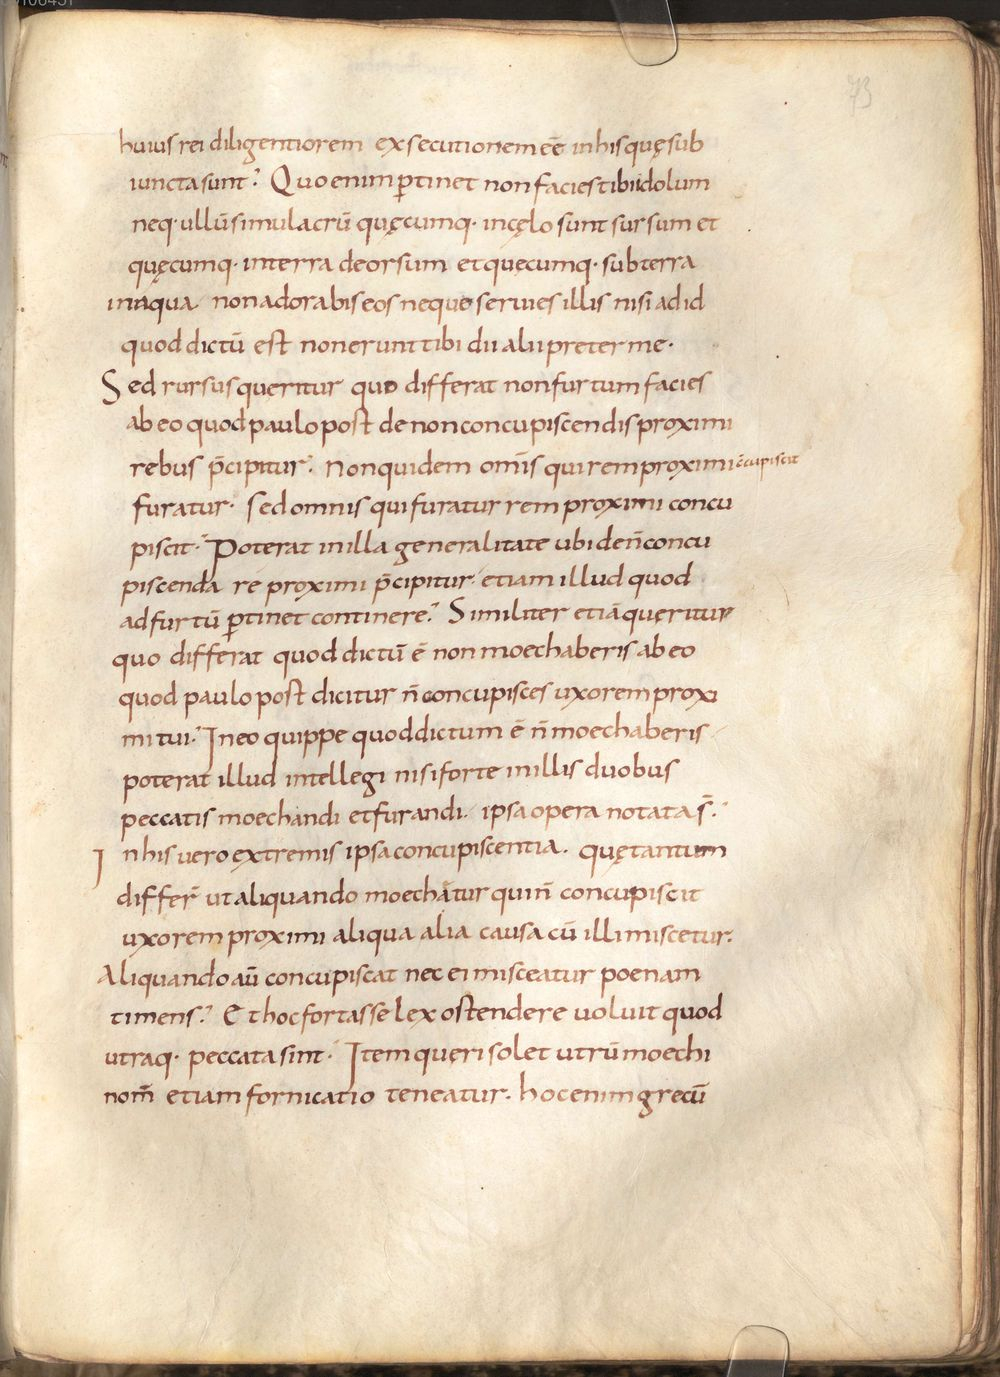 73
huius rei diligentiorem exsecutionem eē in his quę sub
iuncta sunt? Quo enim ꝑtinet non facies tibi idolum
neq· ullū simulacrū quęcumq· in cęlo sunt sursum et
quęcumq· in terra deorsum et quęcumq· sub terra
in aqua non adorabis eos neque seruies illis nisi ad id
quod dictū est non erunt tibi dii alii preter me·
Sed rursus queritur quo differat non furtum facies
ab eo quod paulo post de non concupiscendis proximi
rebus p̄cipitur? Non quidem omīs qui rem proximi c̄cupiscit
furatur· sed omnis qui furatur rem proximi concu
piscit· Poterat in illa generalitate ubi de n̄ concu
piscenda re proximi p̄cipitur etiam illud quod
ad furtū ꝑtinet continere? Similiter etiā quęritur
quo differat quod dictū ē non moechaberis ab eo
quod paulo post dicitur n̄ concupisces uxorem proxi
mi tui? In eo quippe quod dictum ē n̄ moechaberis
poterat illud intellegi nisi forte in illis duobus
peccatis moechandi et furandi· ipsa opera notata s̄?
In his uero extremis ipsa concupiscentia· quę tantum
differ̄ ut aliquando moechātur qui n̄ concupiscit
uxorem proximi aliqua alia causa cū illi miscetur·
Aliquando aū concupiscat nec ei misceatur poenam
timens? Et hoc fortasse lex ostendere uoluit quod
utraq· peccata sint· Item queri solet utrū moechi
nom̄ etiam fornicatio teneatur· hoc enim grecū